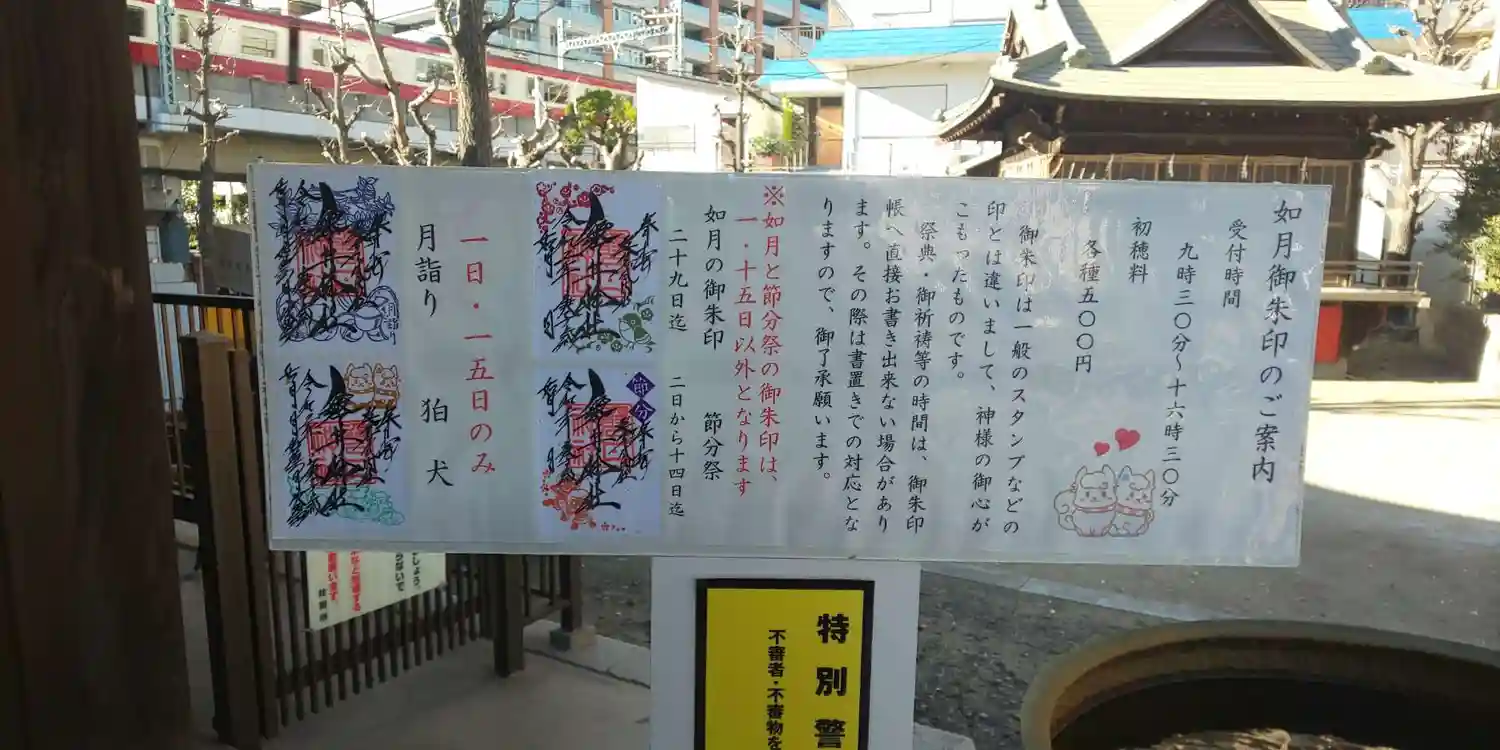 如月御朱印のご案内
受付時間
九時三〇分〜十六時三〇分
初穂料
各種五〇〇円
御朱印は一般のスタンプなどの
印とは違いまして、神様の御心が
こもったものです。
祭典・御祈祷等の時間は、御朱印
帳へ直接お書き出来ない場合があり
ます。その際は書置きでの対応とな
りますので、御了承願います。
※如月と節分祭の御朱印は、
一・十五日以外となります
如月の御朱印 節分祭
二十九日迄 二日から十四日迄
節分
一日・一五日のみ
月詣り 狛犬
月詣
特別警
不審者・不審物を